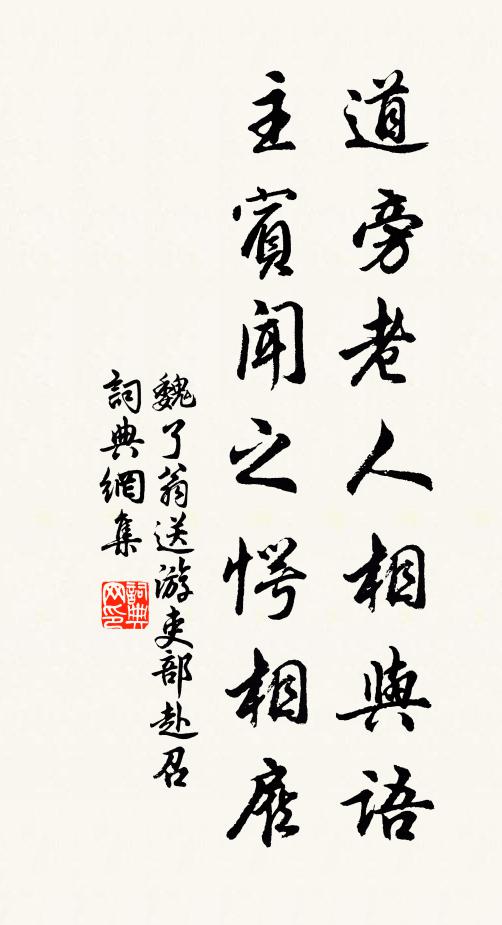 道旁老人相與語
主賓聞之愕相顧
魏了翁送游吏部赴召
詞典網集
詞典網印